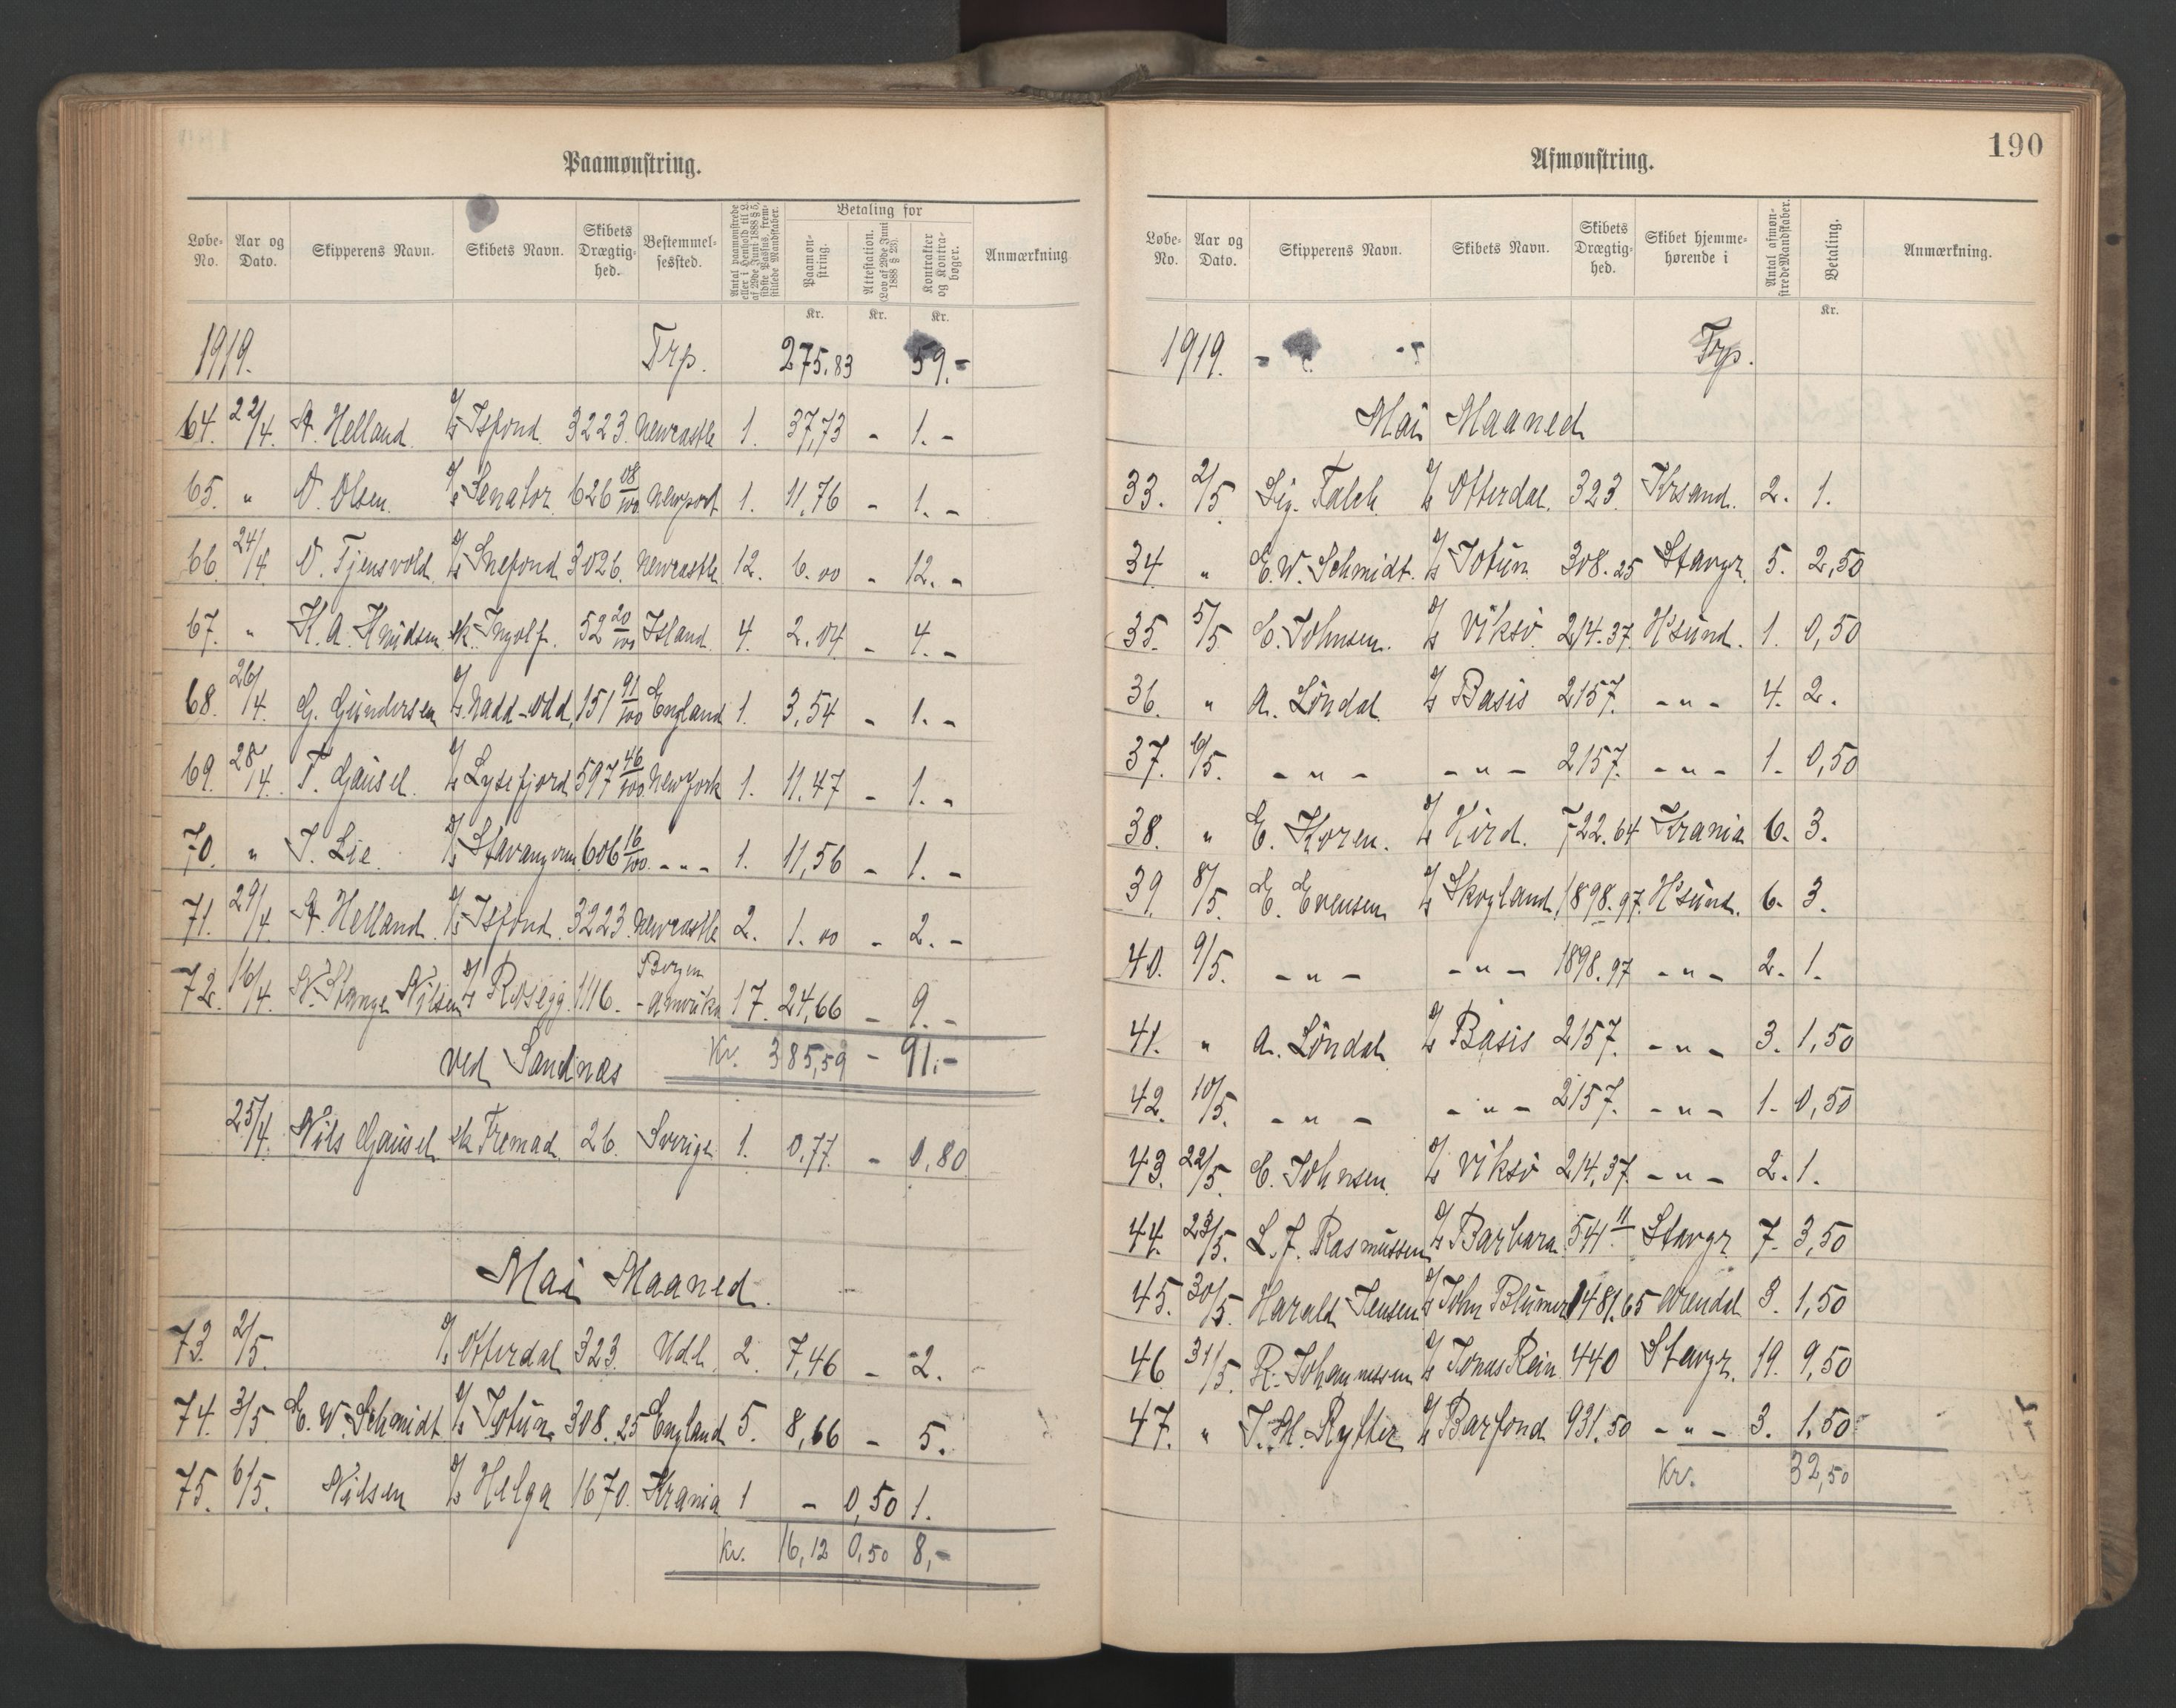 Paamønstring.
Løbe-No. Aar og Dato. Skipperens Navn. Skibets Navn. Skibets Drægtighed. Bestemmelsessted. Antal paamønstrede eller i Henhold til L. af 29de Juni 1888 § 5, sidste Passus, fremstillede Mandskaber. Betaling for Paamønstring. Attestation. (Lov af 29de Juni 1888 § 25). Kontrakter og Kontrabøger. Anmærkning
Kr. Kr. Kr.
1919. Trp. 275.83 59.-
64. 22/4. A. Helland. D/S Isfond. 3223. Newcastle 1. 37,73 - 1. -
65. " O. Olsen. D/S Senator. 626 08/100 Newport 1. 11,76 - 1. -
66. 24/4 O. Tjensvold. D/S Snefond 3026. Newcastle 12. 6.00 - 12. -
67. " K. A. Knudsen sk. Ingolf. 52 20/100 Island. 4. 2.04 - 4. -
68. 26/4. G. Gundersen D/S Nadd-Odd, 151 91/100 England 1. 3,54 - 1. -
69. 28/4. T. Gausel. D/S Lysefjord 597 46/100 New York 1. 11.47 - 1. -
70. " I. Lie. D/S 606 16/100. - " - 1. 11,56 - 1. -
71. 29/4 A. Helland. D/S Isfond. 3223. Newcastle 2. 1.00 - 2. -
72. 16/4. N. Stange Nilsen D/S Rosegg. 1116. Bergen - Amerika 17. 24,66 - 9. -
Kr. 385,59 - 91.-
ved Sandnæs
25/4. Nils Gausel sk Fremad. 26. Sverige 1. 0.77. - 0,80
Mai Maaned.
73. 2/5. D/S Otterdal 323. Udl. 2. 7,46 - 2.
74. 3/5 E. W. Schmidt D/S Jotun 308.25 England 5. 8,66 - 5.
75. 6/5. Nilsen D/S Helga 1670. Krania 1 - 0,50 1.
Kr. 16,12 0,50 8,-
190
Afmønstring.
Løbe-No. Aar og Dato. Skipperens Navn. Skibets Navn. Skibets Drægtighed. Skibet hjemmehørende i Antal afmønstrede Mandskaber. Betaling. Anmærkning.
Kr.
1919. Trp.
Mai Maaned
33. 2/5 Sig. Falch. D/S Otterdal. 323. Krsand. 2. 1.
34 " E. W. Schmidt. D/S Jotun. 308.25 Stavgr. 5. 2,50
35. 5/5 C. Johnsen. D/S Viksö. 214.37. H'sund. 1. 0,50
36. " A. Löndal D/S Basis 2157. - " - 4. 2.
37. 6/5. - " - - " - 2157. - " - 1. 0,50
38. " E. Koren. D/S Hird. 722.64 Krania 6. 3.
39. 8/5. E. Evensen D/S Skogland. 1898.97. H'sund. 6. 3.
40. 9/5. - " - - " - 1898.97 - " - 2. 1.
41. " A. Löndal D/S Basis 2157. - " - 3. 1,50
42. 10/5. - " - - " - 2157. - " - 1. 0,50
43. 22/5. C. Johnsen. D/S Viksö 214,37. - " - 2. 1.
44. 23/5. L. J. Rasmussen D/S Barbara 541 11 Stavgr. 7. 3,50
45. 30/5. Harald Jensen D/S John Blumer 1481.65 Arendal 3. 1,50
46. 31/5. R. Johannessen D/S Jonas Rein 440 Stavgr. 19. 9,50
47. " J. H. Rytter D/S Barfond 931.50 - " - 3. 1,50
Kr. 32,50